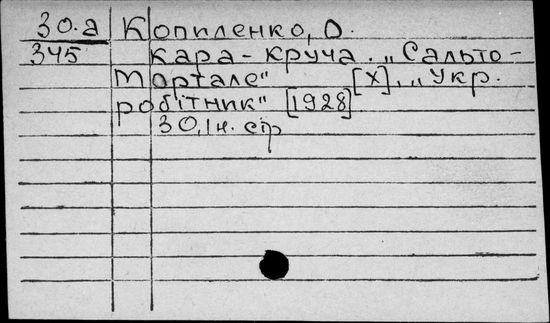 30.а Копиленко, О.
345 Кара-круча. „Сальто-
Мортале" [Х]. „Укр.
робітник" [1928]
30, 1 н. стр